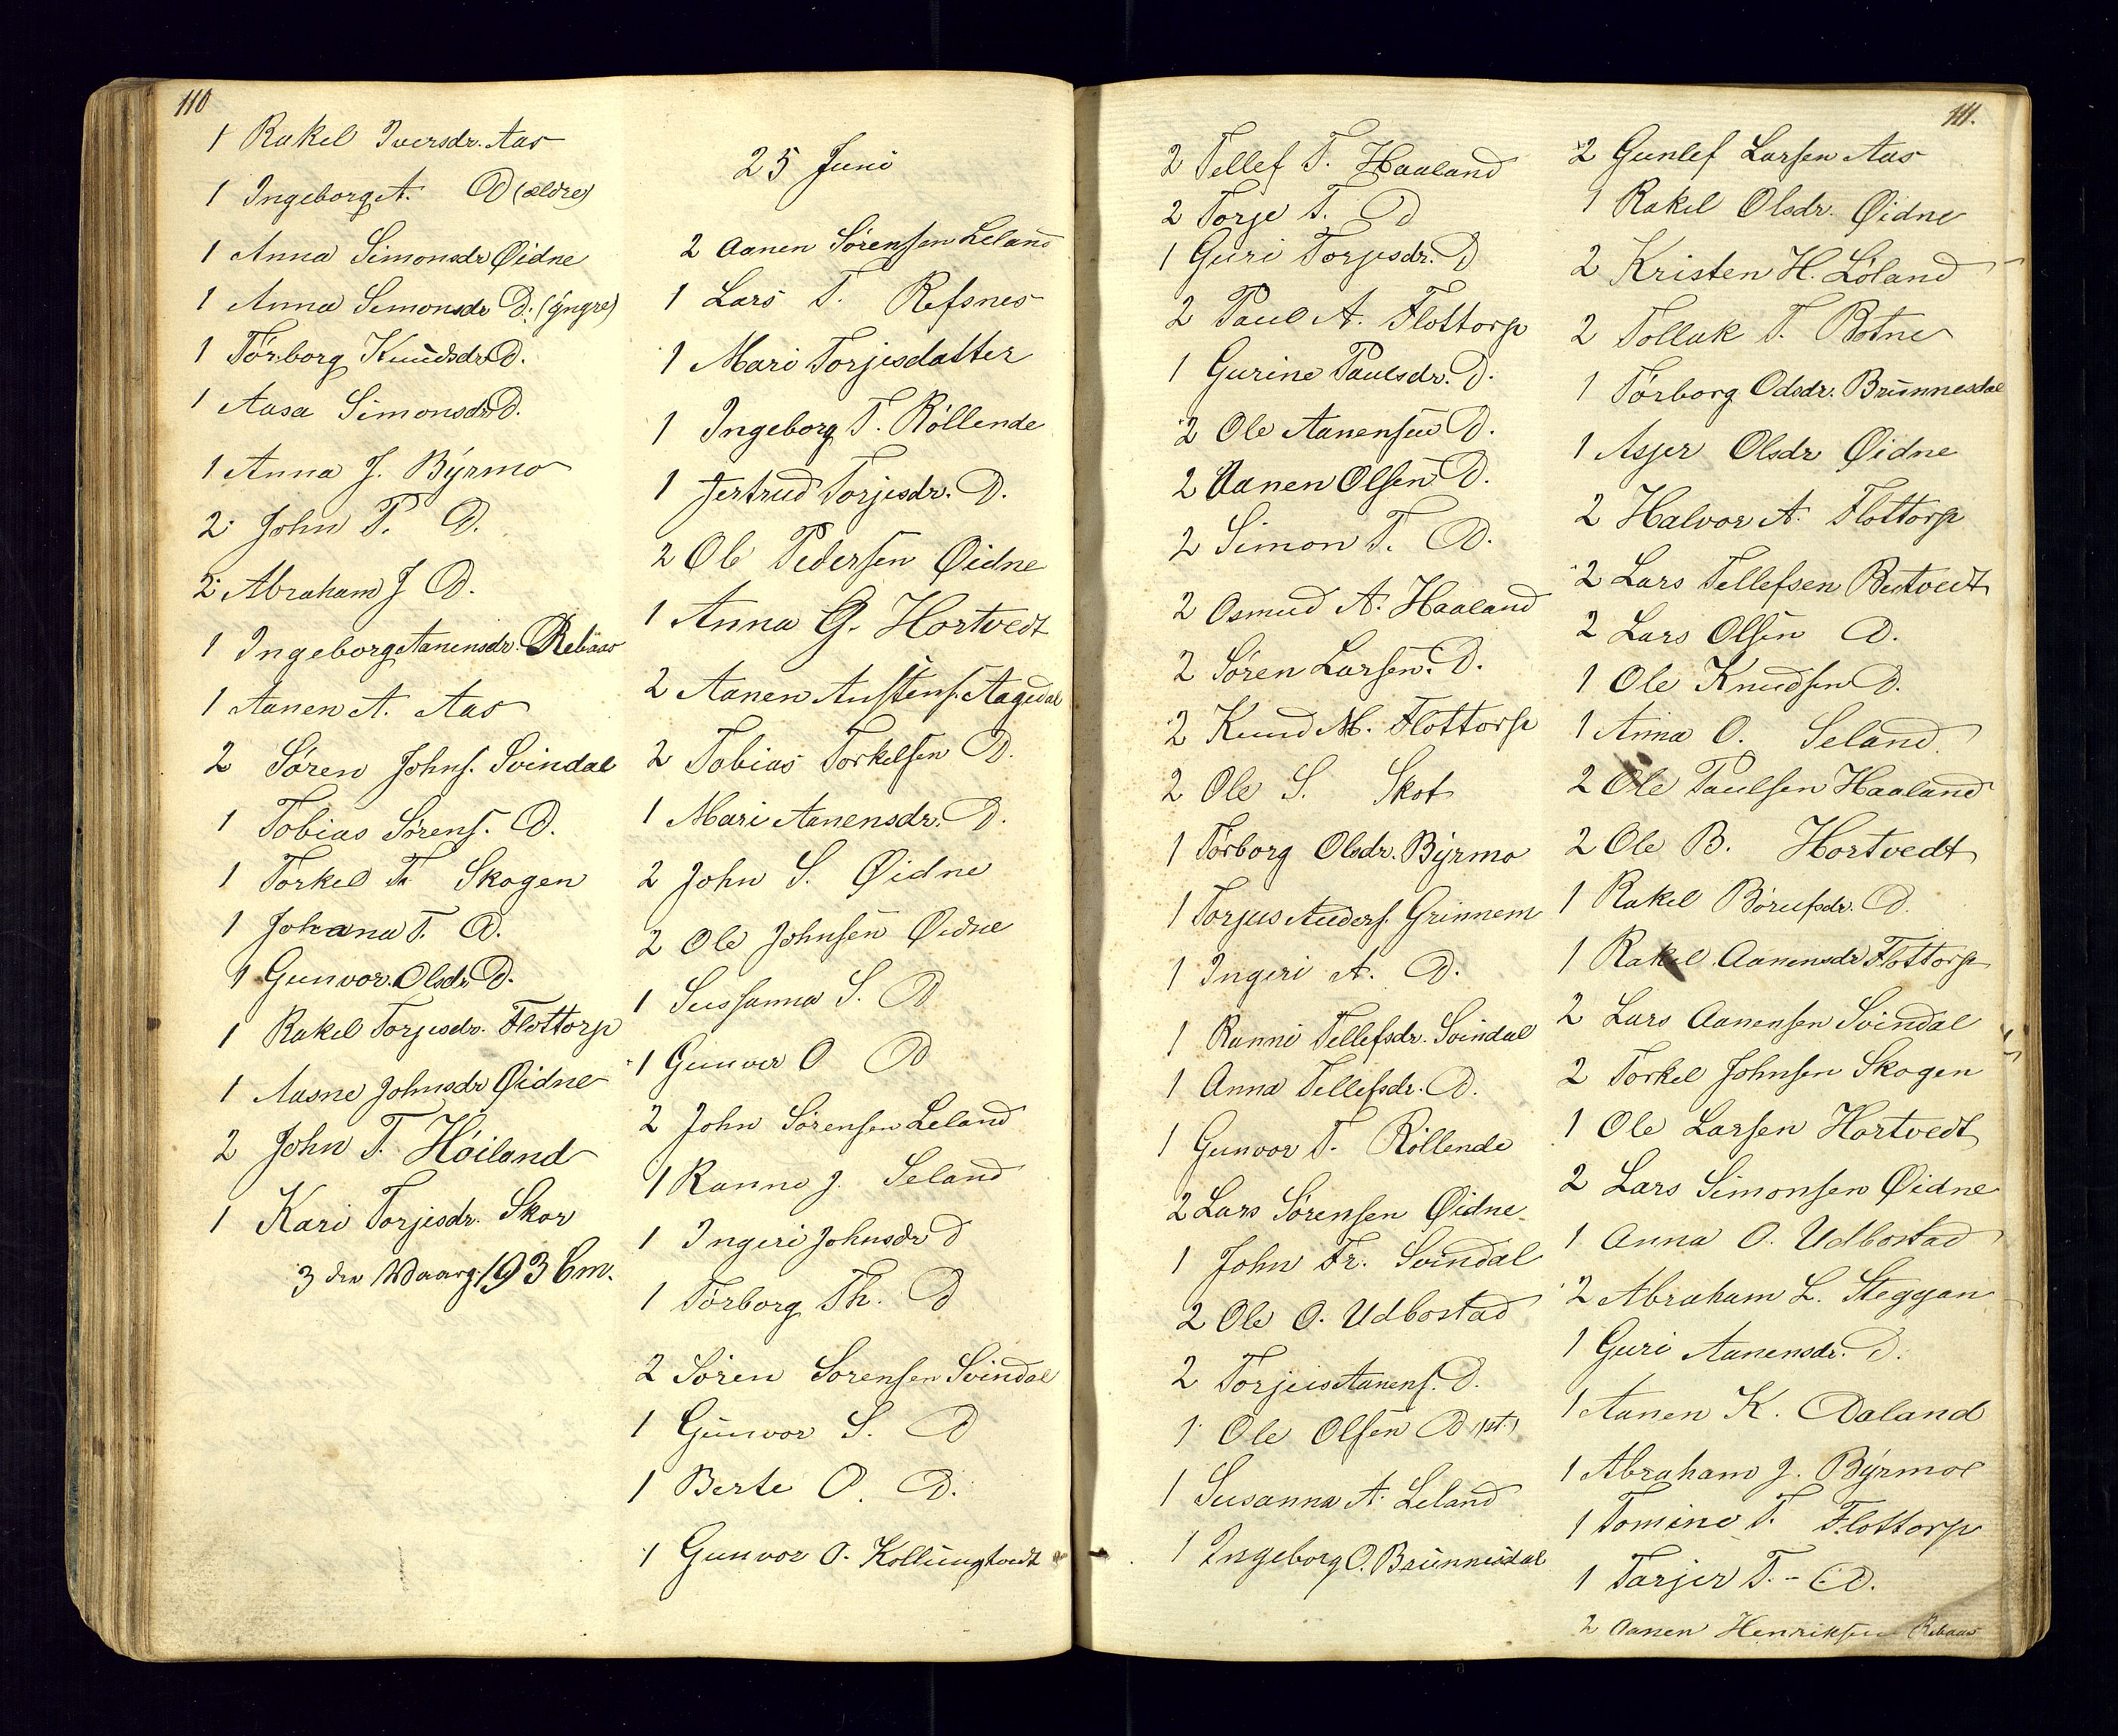 110
1 Rakel Iversdr. Aas
1 Ingeborg A. D (ældre)
1 Anna Simonsdr Øidne
1 Anna Simonsdr D. (ÿngre)
1 Tórborg Knudsdr D.
1 Aasa Simonsdr D.
1 Anna J. Bÿrmo
2 John P. D.
2 Abraham J D.
1 Ingeborg Aanensdr. Rebaas
1 Aanen A. Aas
2 Søren Johns. Svindal
1 Tobias Sørens. D.
1 Torkel Th Skogen
1 Johana T. D.
1 Gunvor Olsdr D.
1 Rakel Torjesdr. Flottorp
1 Aasne Johnsdr Øidne
2 John T. Hóiland
1 Kari Torjesdr. Skor
3 die Waarg. 193 Cm.
25 Juni
2 Aanen Sörensen Leland
1 Lars T. Refsnes
1 Mari Torjesdatter
1 Ingeborg T. Róllende
1 Jertrud Torjesdr. D.
2 Ole Pedersen Øidne
1 Anna G. Hortvedt
2 Aanen Austens. Aagedal
2 Tobias Torkelsen D.
1 Mari Aanensdr. D.
2 John S. Øidne
2 Ole Johnsen Øidne
1 Sussanna S. D
1 Gunver O D
2 John Sørensen Leland
1 Ranne J. Seland
1 Ingeri Johnsdr D
1 Tórborg Th. D
2 Sören Sorensen Svindal
1 Gunvor S. D
1 Berte O. D.
1 Gunvor O. Kollungtvedt
111.
2 Tellef T. Haaland
2 Torje T. D
1 Guri Torjesdr. D
2 Paul A. Flottorp
1 Gurine Paulsdr. D.
2 Ole Aanensen D.
2 Aanen Olsen D.
2 Simon T. D.
2 Osmud A. Haaland
2 Sören Larsen. D.
2 Knud M. Flottorp
2 Ole S. Skot
1 Tórborg Olsdr. Bÿrmo
1 Torjus Anders. Grinnem
1 Ingeri A. D.
1 Ranni Tellefsdr. Svindal
1 Anna Tellefsdr. D.
1 Gunvor T. Róllende
2 Lars Sörensen Øidne
1 John Fr. Svindal
2 Ole O. Udbostad
2 Torjus Aanens. D.
1 Ole Olsen D
1 Susanna A. Leland
1 Ingeborg O. Brunnesdal
2 Gunlef Larsen Aas
1 Rakel Olsdr. Øidne
2 Kristen H. Lóland
2 Tollak T. Botne
1 Tórborg Odsdr. Brunnesdal
1 Asjer Olsdr Øidne
2 Halvor A. Flottorp
2 Lars Tellefsen Bestvedt
2 Lars Olsen D.
1 Ole Knudsen D.
1 Anna O. Seland
2 Ole Paulsen Haaland
2 Ole B. Hortvedt
1 Rakel Börufsdr. D.
1 Rakel Aanensdr Flottorp
2 Lars Aanensen Svindal
2 Torkel Johnsen Skogen
1 Ole Larsen Hortvedt
2 Lars Simonsen Øidne
1 Anna O. Udbostad
2 Abraham L. Steggan
1 Guri Aanensdr. D.
1 Aanen K. Daland
1 Abraham J. Bÿrmoe
1 Tomine T. Flottorp
1 Tarjer T. - D.
2 Aanen Henriksen Rebaas